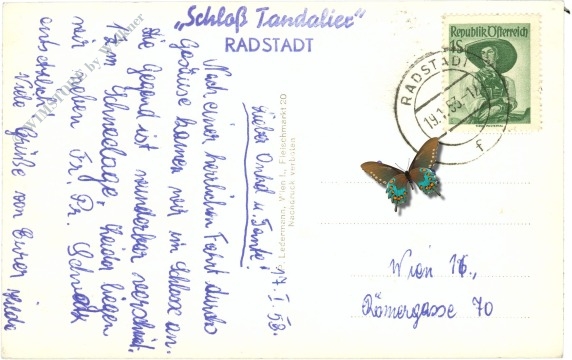 „Schloß Tandalier“
RADSTADT
Republik Österreich
1S
RADSTADT
19.1.58.-17
f
Lieber Onkel u. Tante!
17.I.58.
Nach einer herrlichen Fahrt durchs
Gesäuse kamen wir im Schlosse an.
Die Gegend ist wunderbar verschneit.
1/2 m Schneelage, leider liegen
wir neben Fr. Pr.
entsetzlich
Viele Grüße von Eurer Hilde
Ledermann, Wien I., Fleischmarkt 20
Nachdruck verboten
Wien 16.,
Römergasse 70